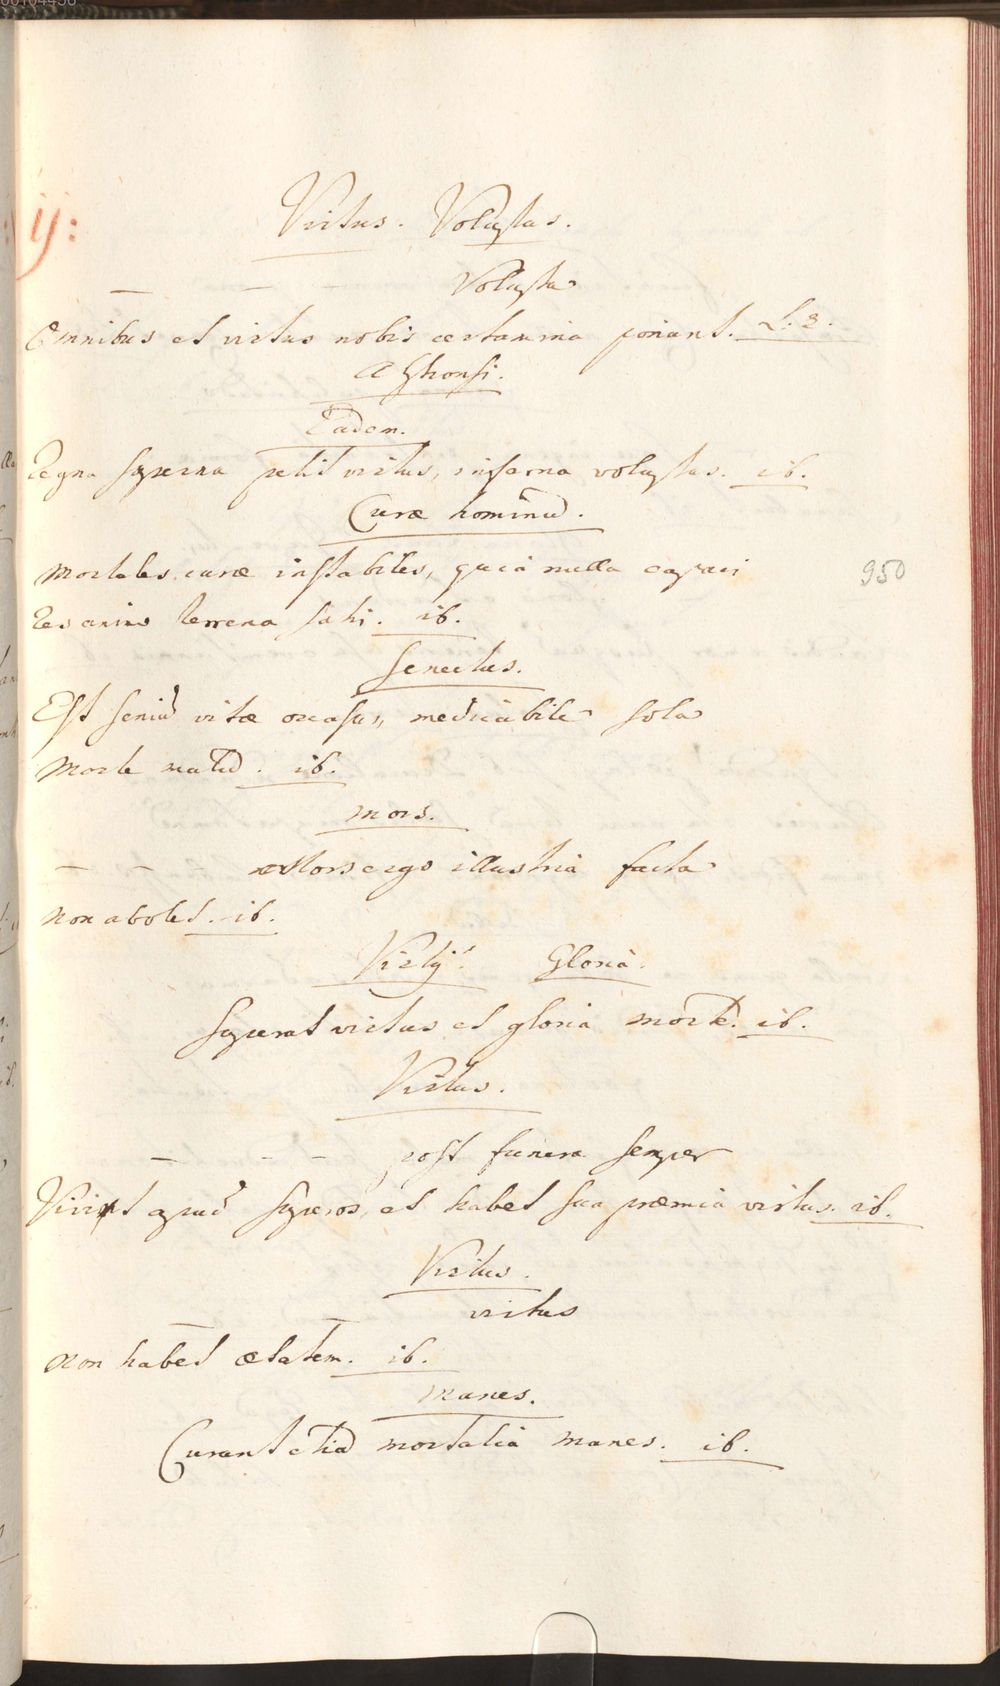 ij:
Virtus. Voluptas.
— — — Voluptas
Omnibus et virtus nobis certamina ponunt. L. 3.
Alphonsi.
Eadem.
Regna superna petit virtus, inferna voluptas. ib.
Curæ hominū.
Mortales curæ instabiles, quia nulla capaci
950
Res animo terrena sati. ib.
Senectus.
Est seniū vitæ occasus, medicabile sola
Morte malū. ib.
Mors.
— — — Mors ergo illustria facta
Non abolet. ib.
Virtus. Gloria.
Superat virtus et gloria mortē. ib.
Virtus.
— — — post funera semper
Vivit apud superos, et habet sua præmia virtus. ib.
Virtus.
— — virtus
Non habet ætatem. ib.
Manes.
Curant etiā mortalia manes. ib.